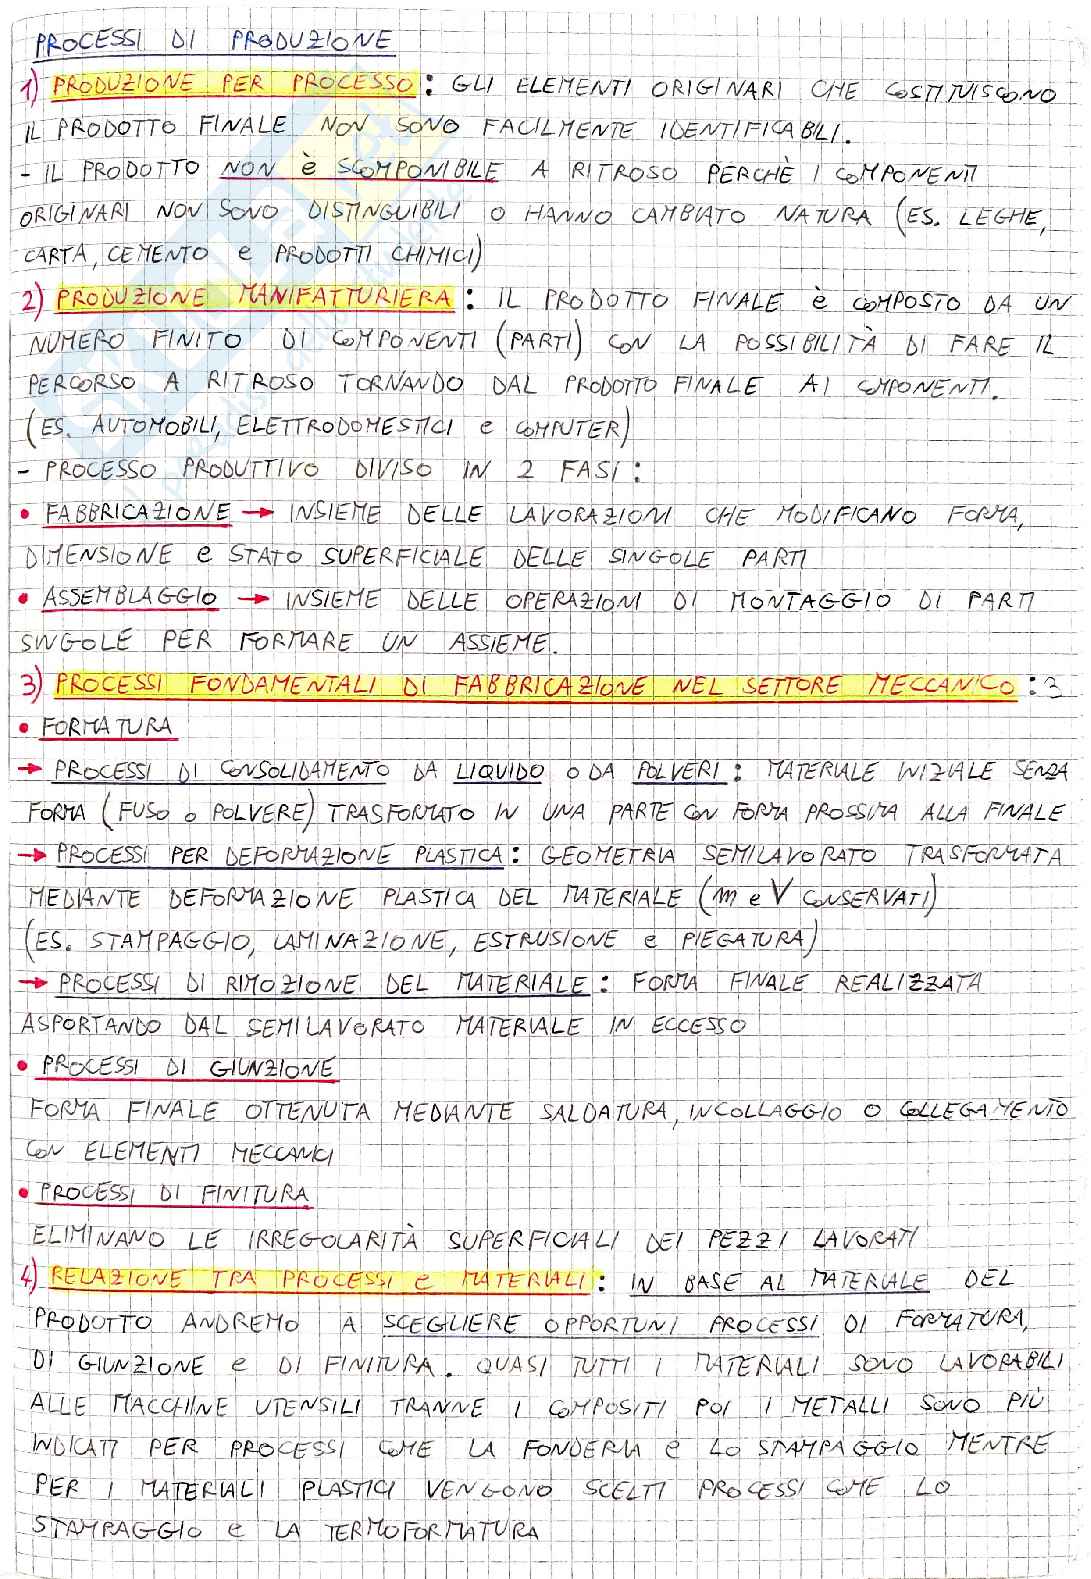 PROCESSI DI PRODUZIONE
1) PRODUZIONE PER PROCESSO: GLI ELEMENTI ORIGINARI CHE COSTITUISCONO
IL PRODOTTO FINALE NON SONO FACILMENTE IDENTIFICABILI.
- IL PRODOTTO NON è SCOMPONIBILE A RITROSO PERCHÈ I COMPONENTI
ORIGINARI NON SONO DISTINGUIBILI O HANNO CAMBIATO NATURA (ES. LEGHE,
CARTA, CEMENTO e PRODOTTI CHIMICI)
2) PRODUZIONE MANIFATTURIERA: IL PRODOTTO FINALE è COMPOSTO DA UN
NUMERO FINITO DI COMPONENTI (PARTI) CON LA POSSIBILITÀ DI FARE IL
PERCORSO A RITROSO TORNANDO DAL PRODOTTO FINALE AI CMPONENTI.
(ES. AUTOMOBILI, ELETTRODOMESTICI e COMPUTER)
- PROCESSO PRODUTTIVO DIVISO IN 2 FASI:
• FABBRICAZIONE → INSIEME DELLE LAVORAZIONI CHE MODIFICANO FORMA,
DIMENSIONE e STATO SUPERFICIALE DELLE SINGOLE PARTI
• ASSEMBLAGGIO → INSIEME DELLE OPERAZIONI DI MONTAGGIO DI PARTI
SINGOLE PER FORMARE UN ASSIEME.
3) PROCESSI FONDAMENTALI DI FABBRICAZIONE NEL SETTORE MECCANICO: 3
• FORMATURA
→ PROCESSI DI CONSOLIDAMENTO DA LIQUIDO O DA POLVERI: MATERIALE INIZIALE SENZA
FORMA (FUSO O POLVERE) TRASFORMATO IN UNA PARTE CON FORMA PROSSIMA ALLA FINALE
→ PROCESSI PER DEFORMAZIONE PLASTICA: GEOMETRIA SEMILAVORATO TRASFORMATA
MEDIANTE DEFORMAZIONE PLASTICA DEL MATERIALE (m e V CONSERVATI)
(ES. STAMPAGGIO, LAMINAZIONE, ESTRUSIONE e PIEGATURA)
→ PROCESSI DI RIMOZIONE DEL MATERIALE: FORMA FINALE REALIZZATA
ASPORTANDO DAL SEMILAVORATO MATERIALE IN ECCESSO
• PROCESSI DI GIUNZIONE
FORMA FINALE OTTENUTA MEDIANTE SALDATURA, INCOLLAGGIO O COLLEGAMENTO
CON ELEMENTI MECCANICI
• PROCESSI DI FINITURA
ELIMINANO LE IRREGOLARITÀ SUPERFICIALI DEI PEZZI LAVORATI
4) RELAZIONE TRA PROCESSI e MATERIALI: IN BASE AL MATERIALE DEL
PRODOTTO ANDREMO A SCEGLIERE OPPORTUNI PROCESSI DI FORMATURA,
DI GIUNZIONE e DI FINITURA. QUASI TUTTI I MATERIALI SONO LAVORABILI
ALLE MACCHINE UTENSILI TRANNE I COMPOSITI POI I METALLI SONO PIÙ
INDICATI PER PROCESSI COME LA FONDERIA e LO STAMPAGGIO MENTRE
PER I MATERIALI PLASTICI VENGONO SCELTI PROCESSI COME LO
STAMPAGGIO e LA TERMOFORMATURA